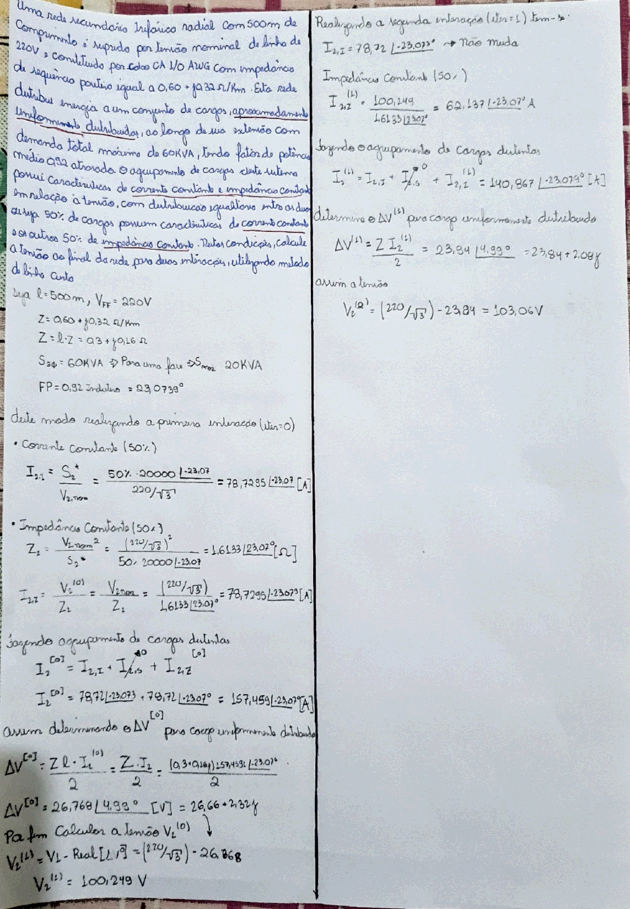 Uma rede secundária trifásica radial com 500m de
comprimento é suprida por tensão nominal de linha de
220V e constituído por cabos CA 1/0 AWG com impedância
de sequência positiva igual a 0,60 + j0,32 Ω/Km. Esta rede
distribui energia a um conjunto de cargas, aproximadamente
uniformemente distribuídas, ao longo de sua extensão com
demanda total máxima de 60KVA, tendo fator de potência
médio 0,92 atrasado. O agrupamento de cargas deste sistema
possui características de corrente constante e impedância constante
em relação à tensão, com distribuição igualitária entre as duas
ou seja 50% de cargas possuem características de corrente constante
e os outros 50% de impedância constante. Nestas condições, calcule
a tensão ao final da rede para duas interações, utilizando método
de linha curta
Seja l=500m, VFF = 220V
Z=0,60 + j0,32 Ω/Km
Z= l·Z = 0,3 + j0,16 Ω
S3Ø = 60KVA ⇒ Para uma fase ⇒ Smax 20KVA
FP=0,92 indutivo = 23,0739°
deste modo realizando a primeira interação (iter=0)
• Corrente Constante (50%)
I2,I = S2* / V2,nom = 50%·20000∠-23,07 / 220/√3 = 78,7295∠-23,07 [A]
• Impedância Constante (50%)
Z2 = V2nom² / S2* = (220/√3)² / 50·20000∠-23,07 = 1.6133∠23,07° [Ω]
I2,Z = V2(0) / Z2 = V2nom / Z2 = (220/√3) / 1.6133∠23,07° = 78,7295∠-23,073 [A]
fazendo agrupamento de cargas distintas
I2[0] = I2,I + I2,S 0 + I2,Z[0]
I2[0] = 78,72∠-23,073 + 78,72∠-23,07° = 157,459∠-23,07° [A]
assim determinando o ΔV[0] para carga uniformemente distribuída
ΔV[0] = Z l·I2(0) / 2 = Z·I2 / 2 = (0,3+0,16j)157,459∠-23,07° / 2
ΔV[0] = 26,768∠4,99° [V] = 26,66 + 2,32j
Por fim Calcular a tensão V2(0)
V2(1) = V1 - Real[ΔV⁰] = (220/√3) - 26,768
V2(1) = 100,249 V
Realizando a segunda interação (iter=1) tem-se:
I2,I = 78,72∠-23,073° → Não muda
Impedância Constante (50%)
I2,Z(1) = 100,249 / 1.6133∠23,07° = 62,137∠-23,07° A
fazendo o agrupamento de cargas distintas
I2(1) = I2,I + I2,S 0 + I2,Z(1) = 140,867∠-23,079° [A]
determine o ΔV(1) para carga uniformemente distribuída
ΔV(1) = Z I2(1) / 2 = 23,94∠4,99° = 23,84 + 2.08j
assim a tensão
V2(2) = (220/√3) - 23,84 = 103,06V